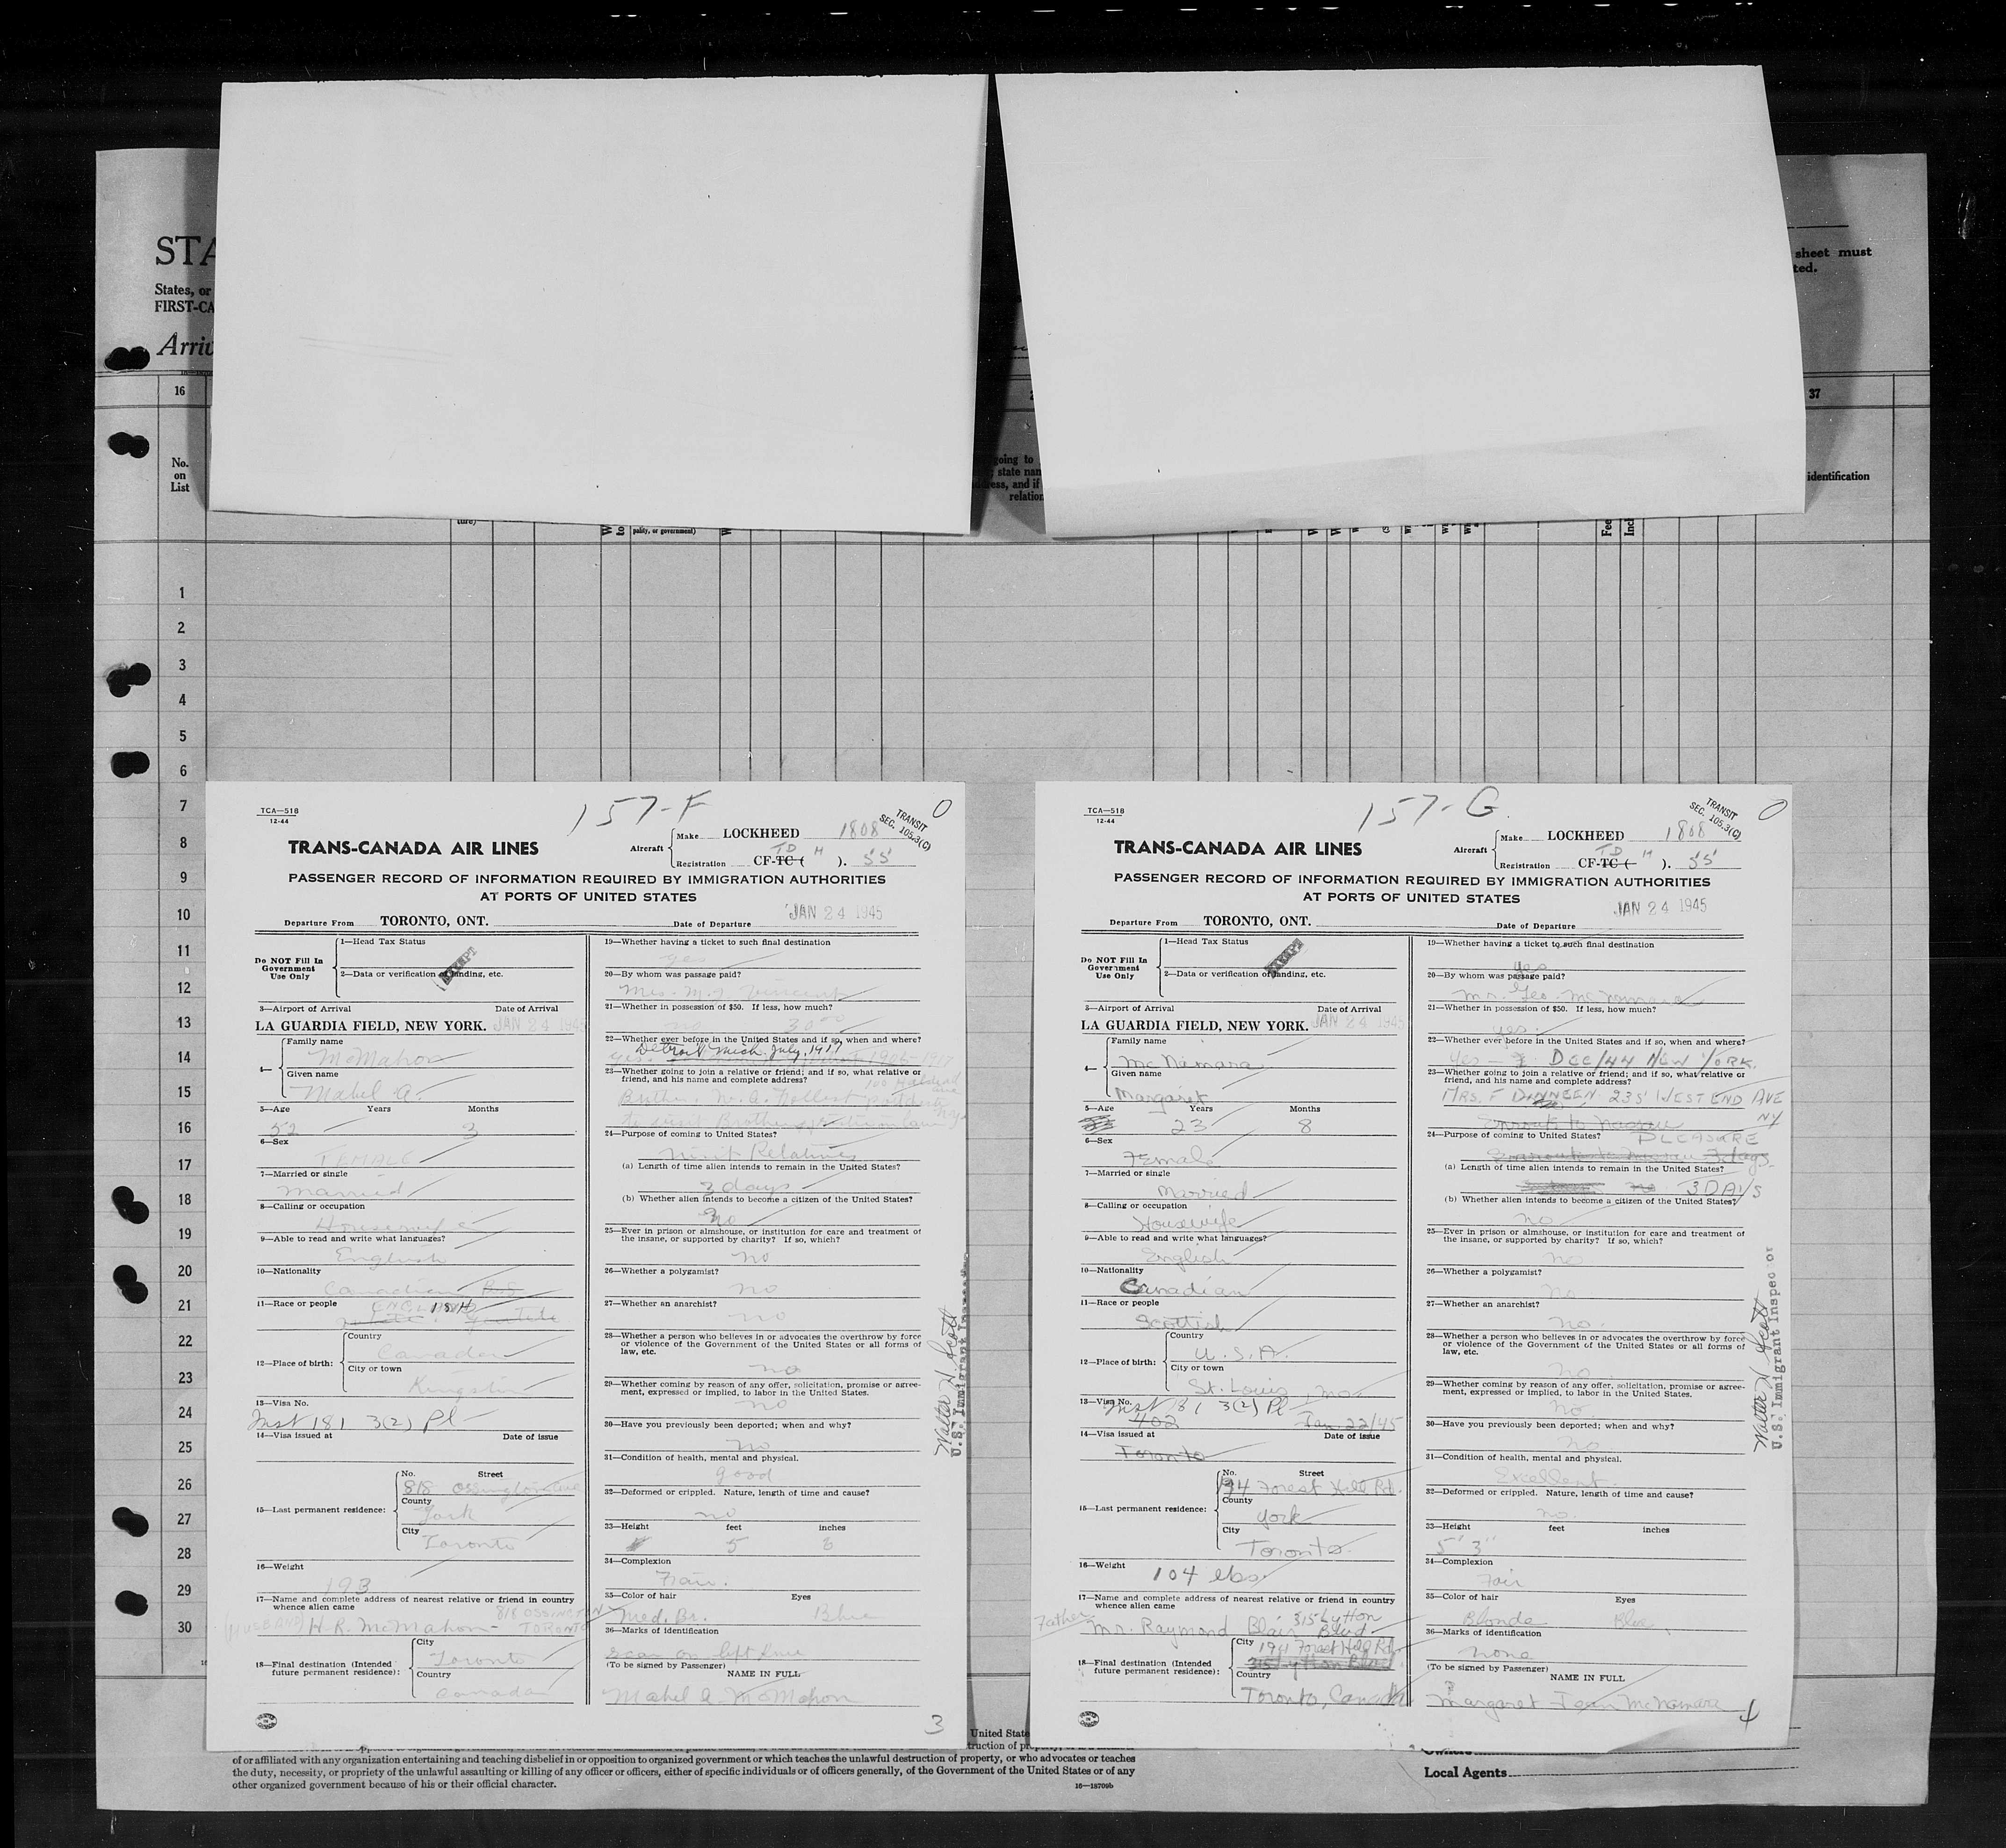 STA
States, or
FIRST-CA
Arriv
sheet must
ted.
16
37
No.
on
List
going to
state nam
dress, and if
relation
identification
ture)
pality, or government)
Fee
Incl
1
2
3
4
5
6
7
8
9
10
11
12
13
14
15
16
17
18
19
20
21
22
23
24
25
26
27
28
29
30
TCA—518
12-44
157-F
O
TRANSIT
SEC. 105.3(C)
TRANS-CANADA AIR LINES
Aircraft
Make LOCKHEED 1808
TD H
Registration CF-TC ( ). 55
PASSENGER RECORD OF INFORMATION REQUIRED BY IMMIGRATION AUTHORITIES
AT PORTS OF UNITED STATES
JAN 24 1945
Departure From TORONTO, ONT. Date of Departure
Do NOT Fill In
Government
Use Only
1—Head Tax Status
EXEMPT
2—Data or verification of landing, etc.
3—Airport of Arrival Date of Arrival
LA GUARDIA FIELD, NEW YORK. JAN 24 1945
4—
Family name
McMahon
Given name
Mabel A.
5—Age Years Months
52 3
6—Sex
FEMALE
7—Married or single
Married
8—Calling or occupation
Housewife
9—Able to read and write what languages?
English
10—Nationality
Canadian
11—Race or people
ENGLISH
12—Place of birth:
Country
Canada
City or town
Kingston
13—Visa No.
Inst 181 3(2) Pl
14—Visa issued at Date of issue
15—Last permanent residence:
No. Street
818 Ossington Ave
County
York
City
Toronto
16—Weight
193
17—Name and complete address of nearest relative or friend in country
whence alien came
818 OSSINGTON
(HUSBAND) H. R. McMahon - TORONTO
18—Final destination (Intended
future permanent residence):
City
Toronto
Country
Canada
19—Whether having a ticket to such final destination
yes
20—By whom was passage paid?
Mrs. M. J. Vincent
21—Whether in possession of $50. If less, how much?
no 30.00
22—Whether ever before in the United States and if so, when and where?
Detroit Mich. July, 1911
yes. 1906-1917
23—Whether going to join a relative or friend; and if so, what relative or
friend, and his name and complete address?
100 Halstead
Brother,
to visit Brother
24—Purpose of coming to United States?
Visit Relatives
(a) Length of time alien intends to remain in the United States?
3 days
(b) Whether alien intends to become a citizen of the United States?
no
25—Ever in prison or almshouse, or institution for care and treatment of
the insane, or supported by charity? If so, which?
no
26—Whether a polygamist?
no
27—Whether an anarchist?
no
28—Whether a person who believes in or advocates the overthrow by force
or violence of the Government of the United States or all forms of
law, etc.
no
29—Whether coming by reason of any offer, solicitation, promise or agree-
ment, expressed or implied, to labor in the United States.
no
30—Have you previously been deported; when and why?
no
31—Condition of health, mental and physical.
good
32—Deformed or crippled. Nature, length of time and cause?
no
33—Height feet inches
5 8
34—Complexion
Fair.
35—Color of hair Eyes
Med. Br. Blue
36—Marks of identification
scar on left knee
(To be signed by Passenger)
NAME IN FULL
Mabel A. McMahon
3
Walter H. Scott
U.S. Immigrant Inspector
TCA—518
12-44
157-G
O
TRANSIT
SEC. 105.3(C)
TRANS-CANADA AIR LINES
Aircraft
Make LOCKHEED 1808
TD H
Registration CF-TC ( ). 55
PASSENGER RECORD OF INFORMATION REQUIRED BY IMMIGRATION AUTHORITIES
AT PORTS OF UNITED STATES
JAN 24 1945
Departure From TORONTO, ONT. Date of Departure
Do NOT Fill In
Government
Use Only
1—Head Tax Status
EXEMPT
2—Data or verification of landing, etc.
3—Airport of Arrival Date of Arrival
LA GUARDIA FIELD, NEW YORK. JAN 24 1945
4—
Family name
McNamara
Given name
Margaret
5—Age Years Months
23 8
6—Sex
Female
7—Married or single
Married
8—Calling or occupation
Housewife
9—Able to read and write what languages?
English
10—Nationality
Canadian
11—Race or people
Scottish
12—Place of birth:
Country
U.S.A.
City or town
St. Louis, Mo.
13—Visa No.
Inst 181 3(2) Pl
402 Jan. 22/45
14—Visa issued at Date of issue
Toronto
15—Last permanent residence:
No. Street
194 Forest Hill Rd.
County
York
City
Toronto.
16—Weight
104 lbs.
17—Name and complete address of nearest relative or friend in country
whence alien came
Father
Mr. Raymond Blair 315 Lytton Blvd.
18—Final destination (Intended
future permanent residence):
City
194 Forest Hill Rd.
315 Lytton Blvd.
Country
Toronto, Canada
19—Whether having a ticket to such final destination
yes
20—By whom was passage paid?
Mr. Geo. McNamara
21—Whether in possession of $50. If less, how much?
yes.
22—Whether ever before in the United States and if so, when and where?
Yes — DEC/44 NEW YORK.
23—Whether going to join a relative or friend; and if so, what relative or
friend, and his name and complete address?
MRS. F DINNEEN 235 WEST END AVE
NY
enroute to Nassau
24—Purpose of coming to United States? PLEASURE
Enroute to Nassau 3 days.
(a) Length of time alien intends to remain in the United States?
no 3 DAYS
(b) Whether alien intends to become a citizen of the United States?
no
25—Ever in prison or almshouse, or institution for care and treatment of
the insane, or supported by charity? If so, which?
no
26—Whether a polygamist?
No
27—Whether an anarchist?
no.
28—Whether a person who believes in or advocates the overthrow by force
or violence of the Government of the United States or all forms of
law, etc.
no
29—Whether coming by reason of any offer, solicitation, promise or agree-
ment, expressed or implied, to labor in the United States.
no
30—Have you previously been deported; when and why?
no
31—Condition of health, mental and physical.
Excellent
32—Deformed or crippled. Nature, length of time and cause?
no.
33—Height feet inches
5' 3"
34—Complexion
Fair
35—Color of hair Eyes
Blonde Blue
36—Marks of identification
none
(To be signed by Passenger)
NAME IN FULL
Margaret Jean McNamara
4
Walter H. Scott
U.S. Immigrant Inspector
United State
truction of pr
of or affiliated with any organization entertaining and teaching disbelief in or opposition to organized government or which teaches the unlawful destruction of property, or who advocates or teaches
the duty, necessity, or propriety of the unlawful assaulting or killing of any officer or officers, either of specific individuals or of officers generally, of the Government of the United States or of any
other organized government because of his or their official character.
16—18709b
Owners
Local Agents